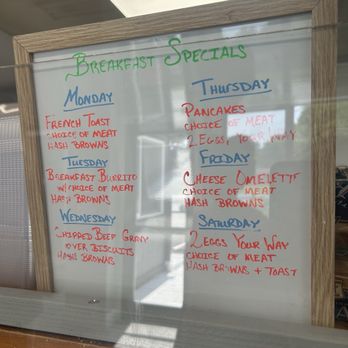 Breakfast Specials
Monday
French Toast
Choice of Meat
Hash Browns
Tuesday
Breakfast Burrito
w/ Choice of Meat
Hash Browns
Wednesday
Chipped Beef Gravy
over Biscuits
Hash Browns
Thursday
Pancakes
Choice of Meat
2 Eggs, Your Way
Friday
Cheese Omelette
Choice of Meat
Hash Browns
Saturday
2 Eggs Your Way
Choice of Meat
Hash Browns + Toast